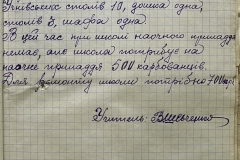 столів 10, дошка одна,
столів 3, шафа одна
В цей час при школі наочного приладдя
немає, але школа потрибує на
наочне приладдя 500 карбованців.
Для ремонту школи потрібно 700 кар.
Учитель